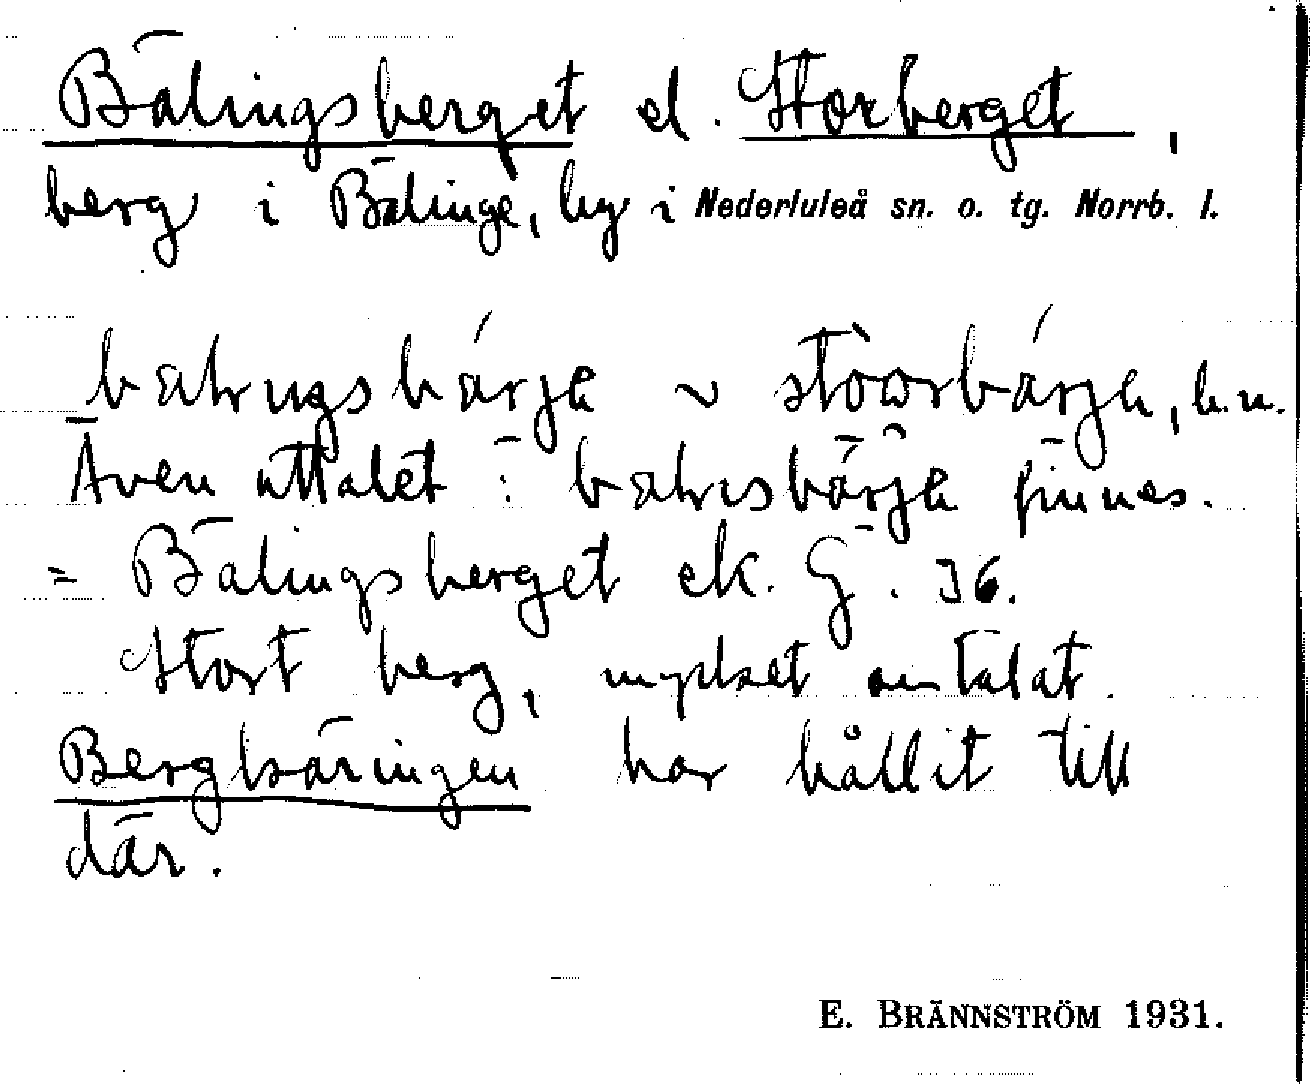 Bälingsberget el. Storberget,
berg i Bälinge, by i Nederluleå sn. o. tg. Norrb. l.
Även uttalet : finnes.
= Bälingsberget ek. G. 36.
Stort berg, mycket omtalat.
Bergkäringen har hållit till
där.
E. BRÄNNSTRÖM 1931.